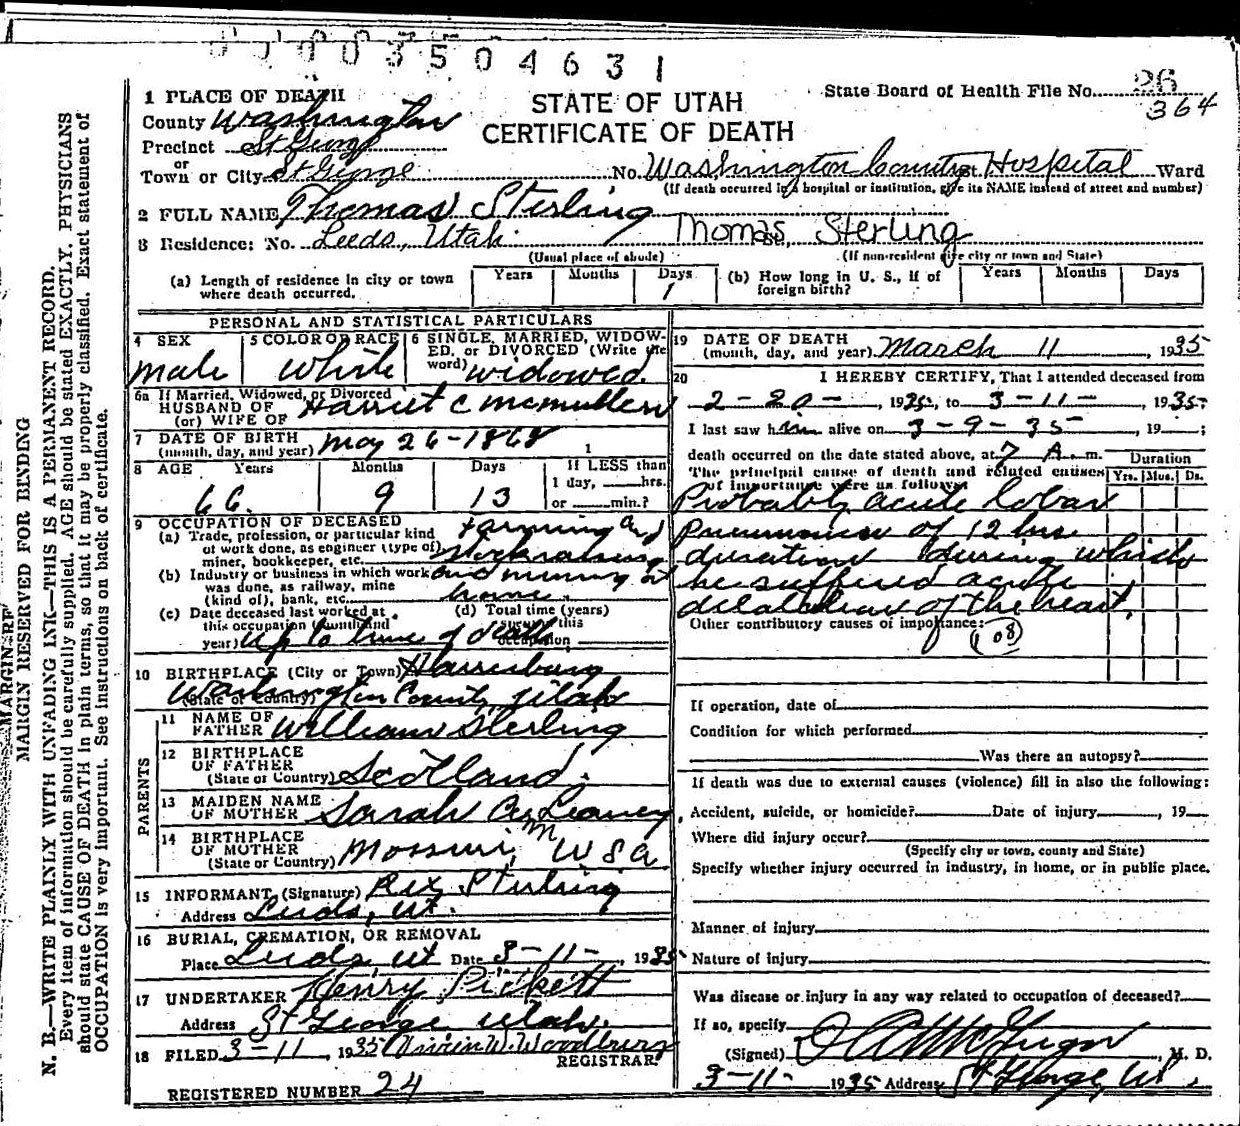 00003504631
STATE OF UTAH
CERTIFICATE OF DEATH
State Board of Health File No. 26
364
1 PLACE OF DEATH
County Washington
Precinct St George
or
Town or City St George No. Washington County St. Hospital Ward
(If death occurred in a hospital or institution, give its NAME instead of street and number)
2 FULL NAME Thomas Sterling
3 Residence: No. Leeds, Utah. Thomas Sterling
(Usual place of abode) (If non-resident give city or town and State)
(a) Length of residence in city or town where death occurred. Years Months Days 1
(b) How long in U. S., if of foreign birth? Years Months Days
PERSONAL AND STATISTICAL PARTICULARS
4 SEX male
5 COLOR OR RACE white
6 SINGLE, MARRIED, WIDOWED, or DIVORCED (Write the word) widowed.
6a If Married, Widowed, or Divorced
HUSBAND OF
(or) WIFE OF Harriet C McMullen
7 DATE OF BIRTH
(month, day, and year) May 26-1868 1
8 AGE Years 66. Months 9 Days 13
If LESS than
1 day, hrs.
or min.?
9 OCCUPATION OF DECEASED
(a) Trade, profession, or particular kind of work done, as engineer (type of) miner, bookkeeper, etc. Farming and stockraising
(b) Industry or business in which work was done, as railway, mine (kind of), bank, etc. and mining at home.
(c) Date deceased last worked at this occupation (month and year) up to time of death
(d) Total time (years) spent in this occupation
10 BIRTHPLACE (City or Town) Harrisburg
(State or Country) Washington County, Utah
PARENTS
11 NAME OF FATHER William Sterling
12 BIRTHPLACE OF FATHER
(State or Country) Scotland.
13 MAIDEN NAME OF MOTHER Sarah Ann Leaney
14 BIRTHPLACE OF MOTHER
(State or Country) U S A
15 INFORMANT, (Signature) Rex Sterling
Address Leeds, Ut.
16 BURIAL, CREMATION, OR REMOVAL
Place Leeds Ut Date 3-11-, 1935
17 UNDERTAKER Henry Pickett
Address St George Utah.
18 FILED 3-11, 1935 W. Woodbury
REGISTRAR.
REGISTERED NUMBER 24
19 DATE OF DEATH
(month, day, and year) March 11, 1935
20 I HEREBY CERTIFY, That I attended deceased from
2-20-, 1935, to 3-11-, 1935
I last saw him alive on 3-9-35, 19 ;
death occurred on the date stated above, at 7 A. m.
Duration
Yrs. Mos. Ds.
The principal cause of death and related causes of importance were as follows
Probably acute lobar
pneumonia of 12 hrs
duration during which
he suffered acute
dilatation of the heart.
Other contributory causes of importance:
108
If operation, date of
Condition for which performed
Was there an autopsy?
If death was due to external causes (violence) fill in also the following:
Accident, suicide, or homicide? Date of injury , 19
Where did injury occur?
(Specify city or town, county and State)
Specify whether injury occurred in industry, in home, or in public place.
Manner of injury
Nature of injury
Was disease or injury in any way related to occupation of deceased?
If so, specify
(Signed) McGregor, M. D.
3-11- 1935 Address St George, Ut.
MARGIN RESERVED FOR BINDING
N. B.—WRITE PLAINLY WITH UNFADING INK—THIS IS A PERMANENT RECORD.
Every item of information should be carefully supplied. AGE should be stated EXACTLY. PHYSICIANS
should state CAUSE OF DEATH in plain terms, so that it may be properly classified. Exact statement of
OCCUPATION is very important. See instructions on back of certificate.